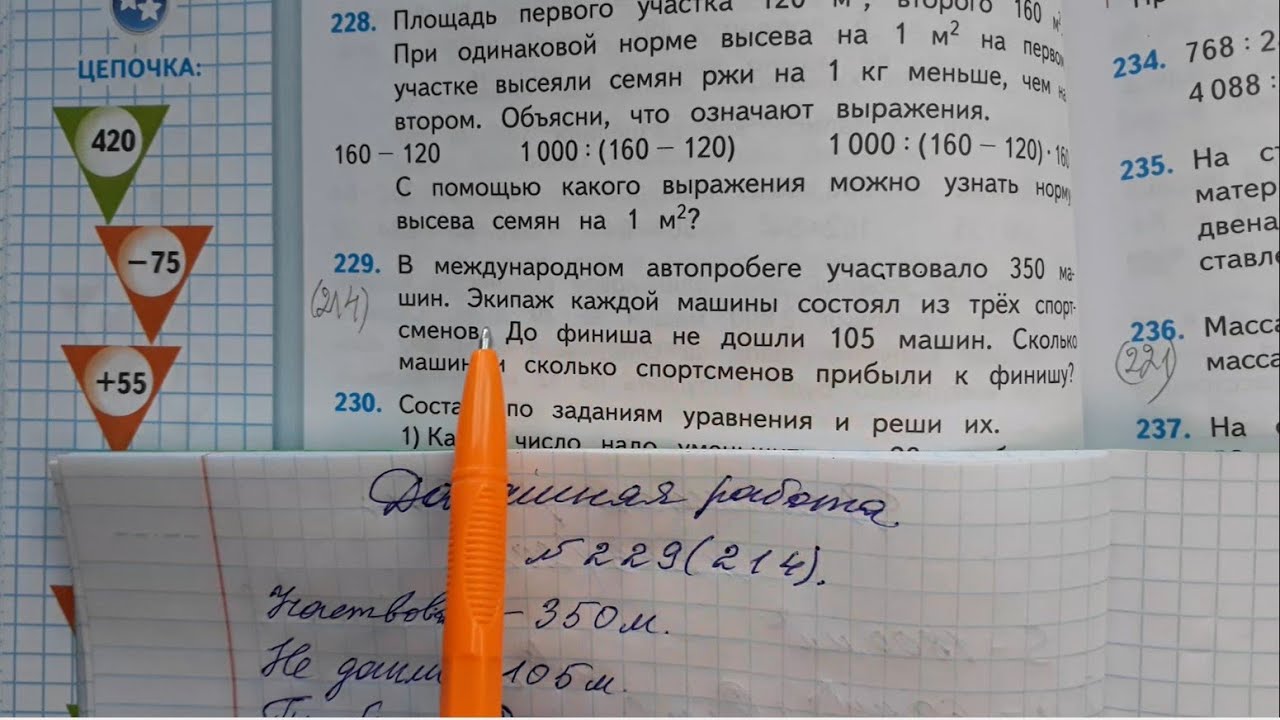 ЦЕПОЧКА:
420
−75
+55
228. Площадь первого участка 120 м², второго 160 м²
При одинаковой норме высева на 1 м² на
участке высеяли семян ржи на 1 кг меньше, чем на
втором. Объясни, что означают выражения.
160 − 120 1 000 : (160 − 120) 1 000 : (160 − 120) · 160
С помощью какого выражения можно узнать норму
высева семян на 1 м²?
229. В международном автопробеге участвовало 350 ма-
(214) шин. Экипаж каждой машины состоял из трёх спорт-
сменов. До финиша не дошли 105 машин. Сколько
машин и сколько спортсменов прибыли к финишу?
230. по заданиям уравнения и реши их.
1) число надо
234. 768 : 2
4 088 :
235. На
236.
(221)
237. На
Домашняя работа
№ 229(214).
– 350 м.
Не дошли 105 м.